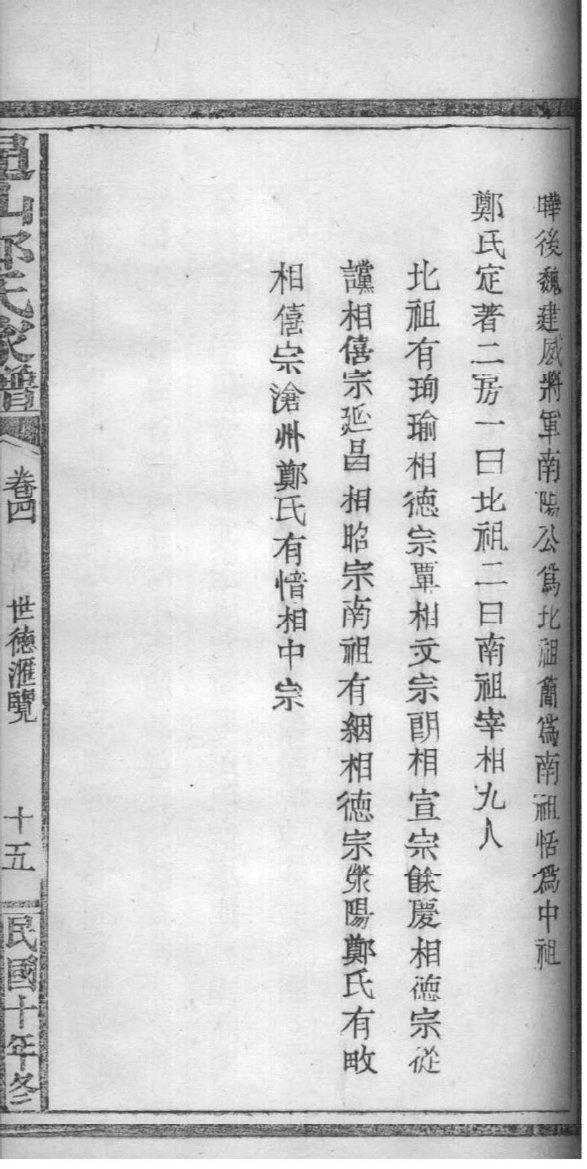 曄後魏建威將軍南陽公爲北祖簡爲南祖恬爲中祖
鄭氏定著二房一曰北祖二曰南祖宰相九人
北祖有珣瑜相德宗覃相文宗朗相宣宗餘慶相德宗從
讜相僖宗延昌相昭宗南祖有絪相德宗滎陽鄭氏有畋
相僖宗滄州鄭氏有愔相中宗
山鄭氏家譜
卷四
世德滙覽
十五
民國十年冬